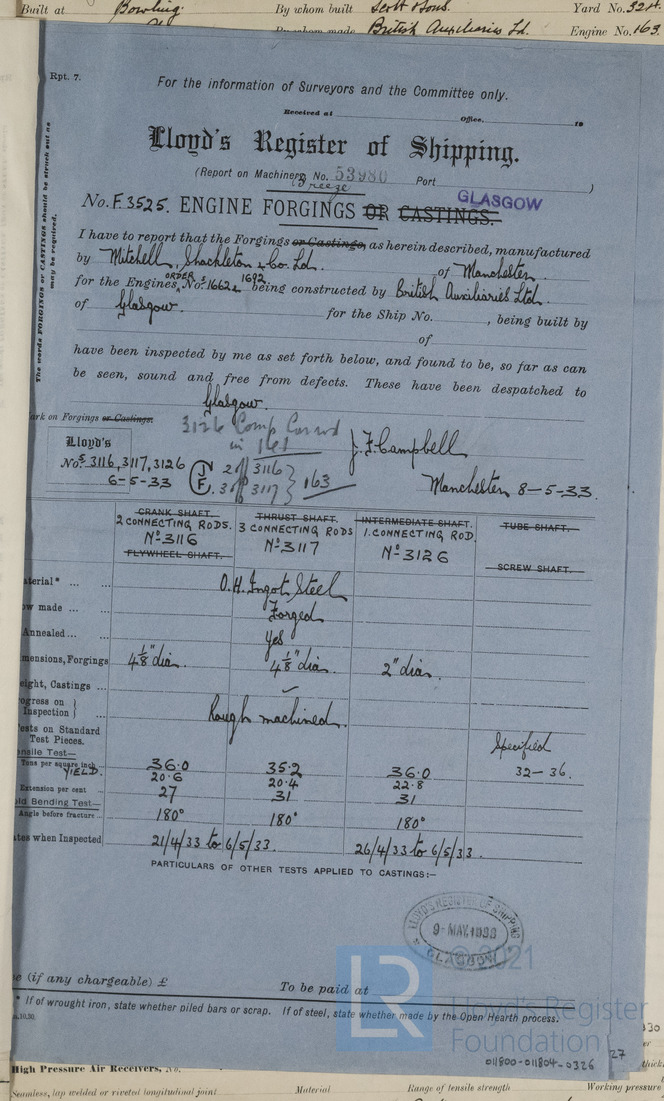 Built at Bowling. By whom built Scott & Sons. Yard No. 324.
By whom made British Auxiliaries Ld. Engine No. 163.
Rpt. 7.
For the information of Surveyors and the Committee only.
Received at Office, 19
Lloyd's Register of Shipping.
(Report on Machinery No. 53980 Port )
Breeze
GLASGOW
No. F.3525. ENGINE FORGINGS OR CASTINGS.
The words FORGINGS or CASTINGS should be struck out as
may be required.
I have to report that the Forgings or Castings, as herein described, manufactured
by Mitchell, Shackleton & Co. Ld. of Manchester
for the Engines, ORDER Nos. 1662 & 1692 being constructed by British Auxiliaries Ltd.
of Glasgow. for the Ship No. , being built by
of
have been inspected by me as set forth below, and found to be, so far as can
be seen, sound and free from defects. These have been despatched to
Glasgow.
ark on Forgings or Castings.
3126 Comp
in 161
Lloyd's
Nos. 3116, 3117, 3126
6-5-33
J
F.
2 of 3116
3 of 3117
163
J. F. Campbell
Manchester 8-5-33.
CRANK SHAFT. THRUST SHAFT. INTERMEDIATE SHAFT. TUBE SHAFT.
2 CONNECTING RODS. 3 CONNECTING RODS 1. CONNECTING ROD.
No. 3116 No. 3117 No. 3126
FLYWHEEL SHAFT. SCREW SHAFT.
aterial* ... ... O.H. Ingot Steel
ow made ... ... Forged
Annealed... ... Yes
mensions, Forgings 4 1/8" dia. 4 1/8" dia 2" dia.
eight, Castings ... ✓
ogress on
Inspection } ... Rough machined.
ests on Standard
Test Pieces. Specified
nsile Test—
Tons per square inch 36.0 35.2 36.0 32-36.
YIELD. 20.6 20.4 22.8
Extension per cent 27 31 31
old Bending Test—
Angle before fracture... 180° 180° 180°
tes when Inspected 21/4/33 to 6/5/33. 26/4/33 to 6/5/33.
PARTICULARS OF OTHER TESTS APPLIED TO CASTINGS:—
LLOYD'S REGISTER OF SHIPPING
9-MAY.1933
GLASGOW
© 2021
LR
Lloyd's Register
Foundation
e (if any chargeable) £ To be paid at
* If of wrought iron, state whether piled bars or scrap. If of steel, state whether made by the Open Hearth process.
011800-011804-0326
27
High Pressure Air Receivers, No.
Seamless, lap welded or riveted longitudinal joint Material Range of tensile strength Working pressure